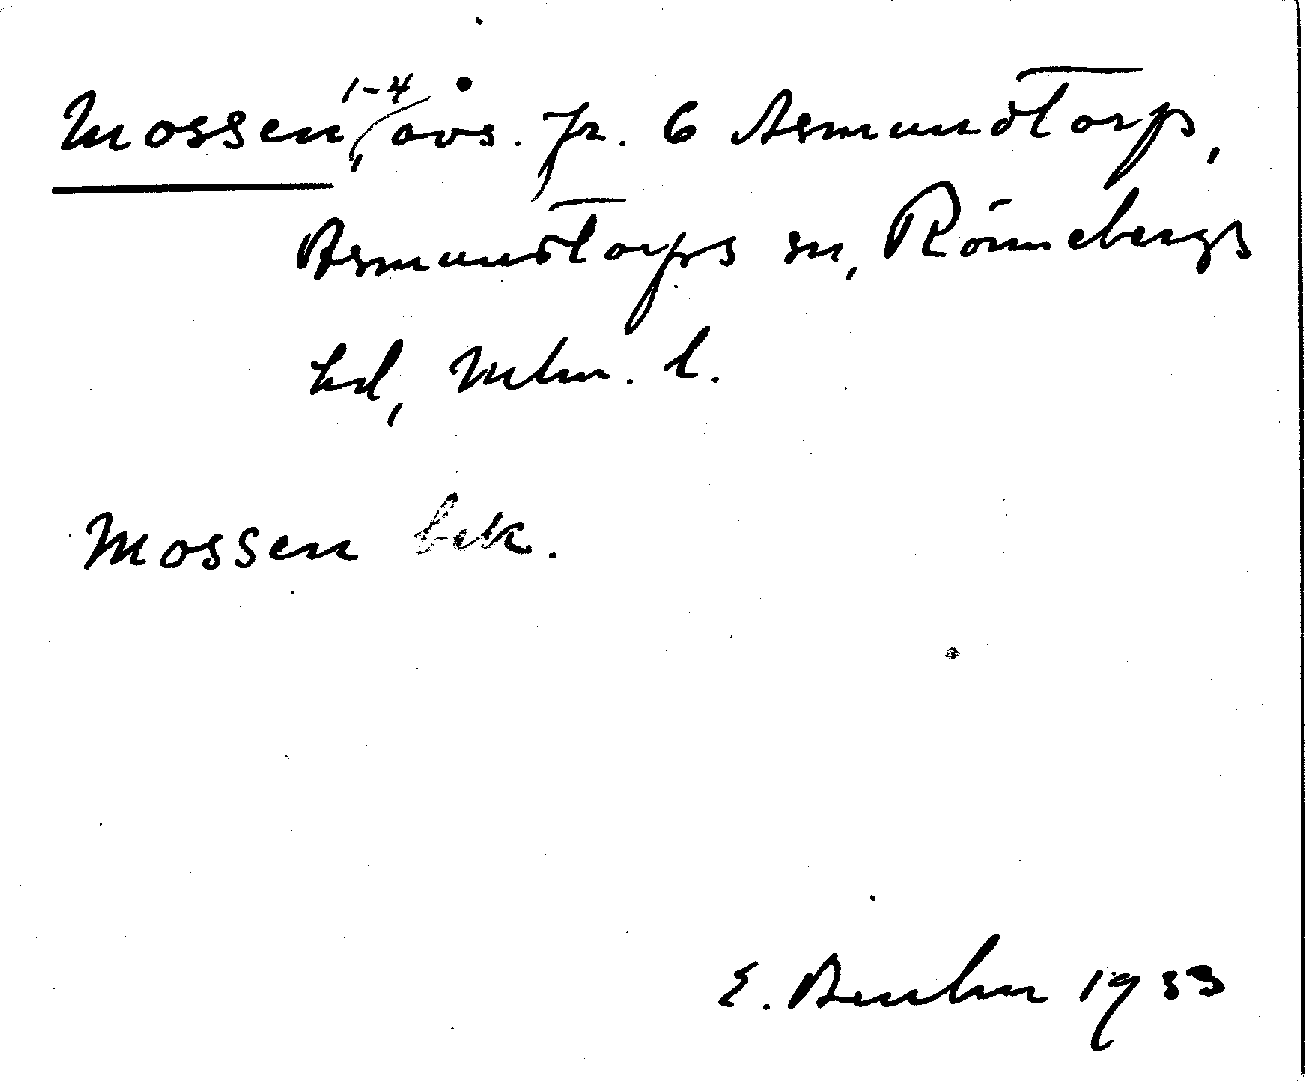 Mossen 1-4, avs. fr. 6 Asmundtorp,
Asmundtorps sn, Rönnebergs
hd, Mlm. l.
Mossen bek.
E. 1933